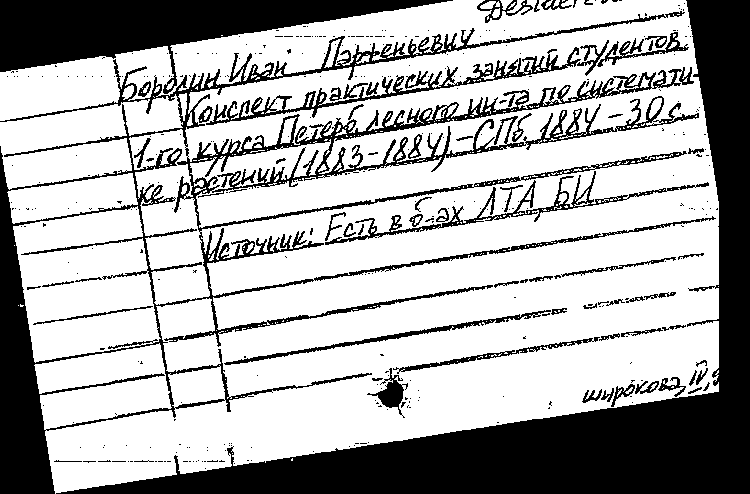 Бородин, Иван Парфеньевич
Конспект практических занятий студентов
1-го курса Петерб. лесного ин-та по системати-
ке растений (1883-1884) - СПб, 1884 - 30 с.
Источник: Есть в б-ах ЛТА, БИ
широкова, IV,